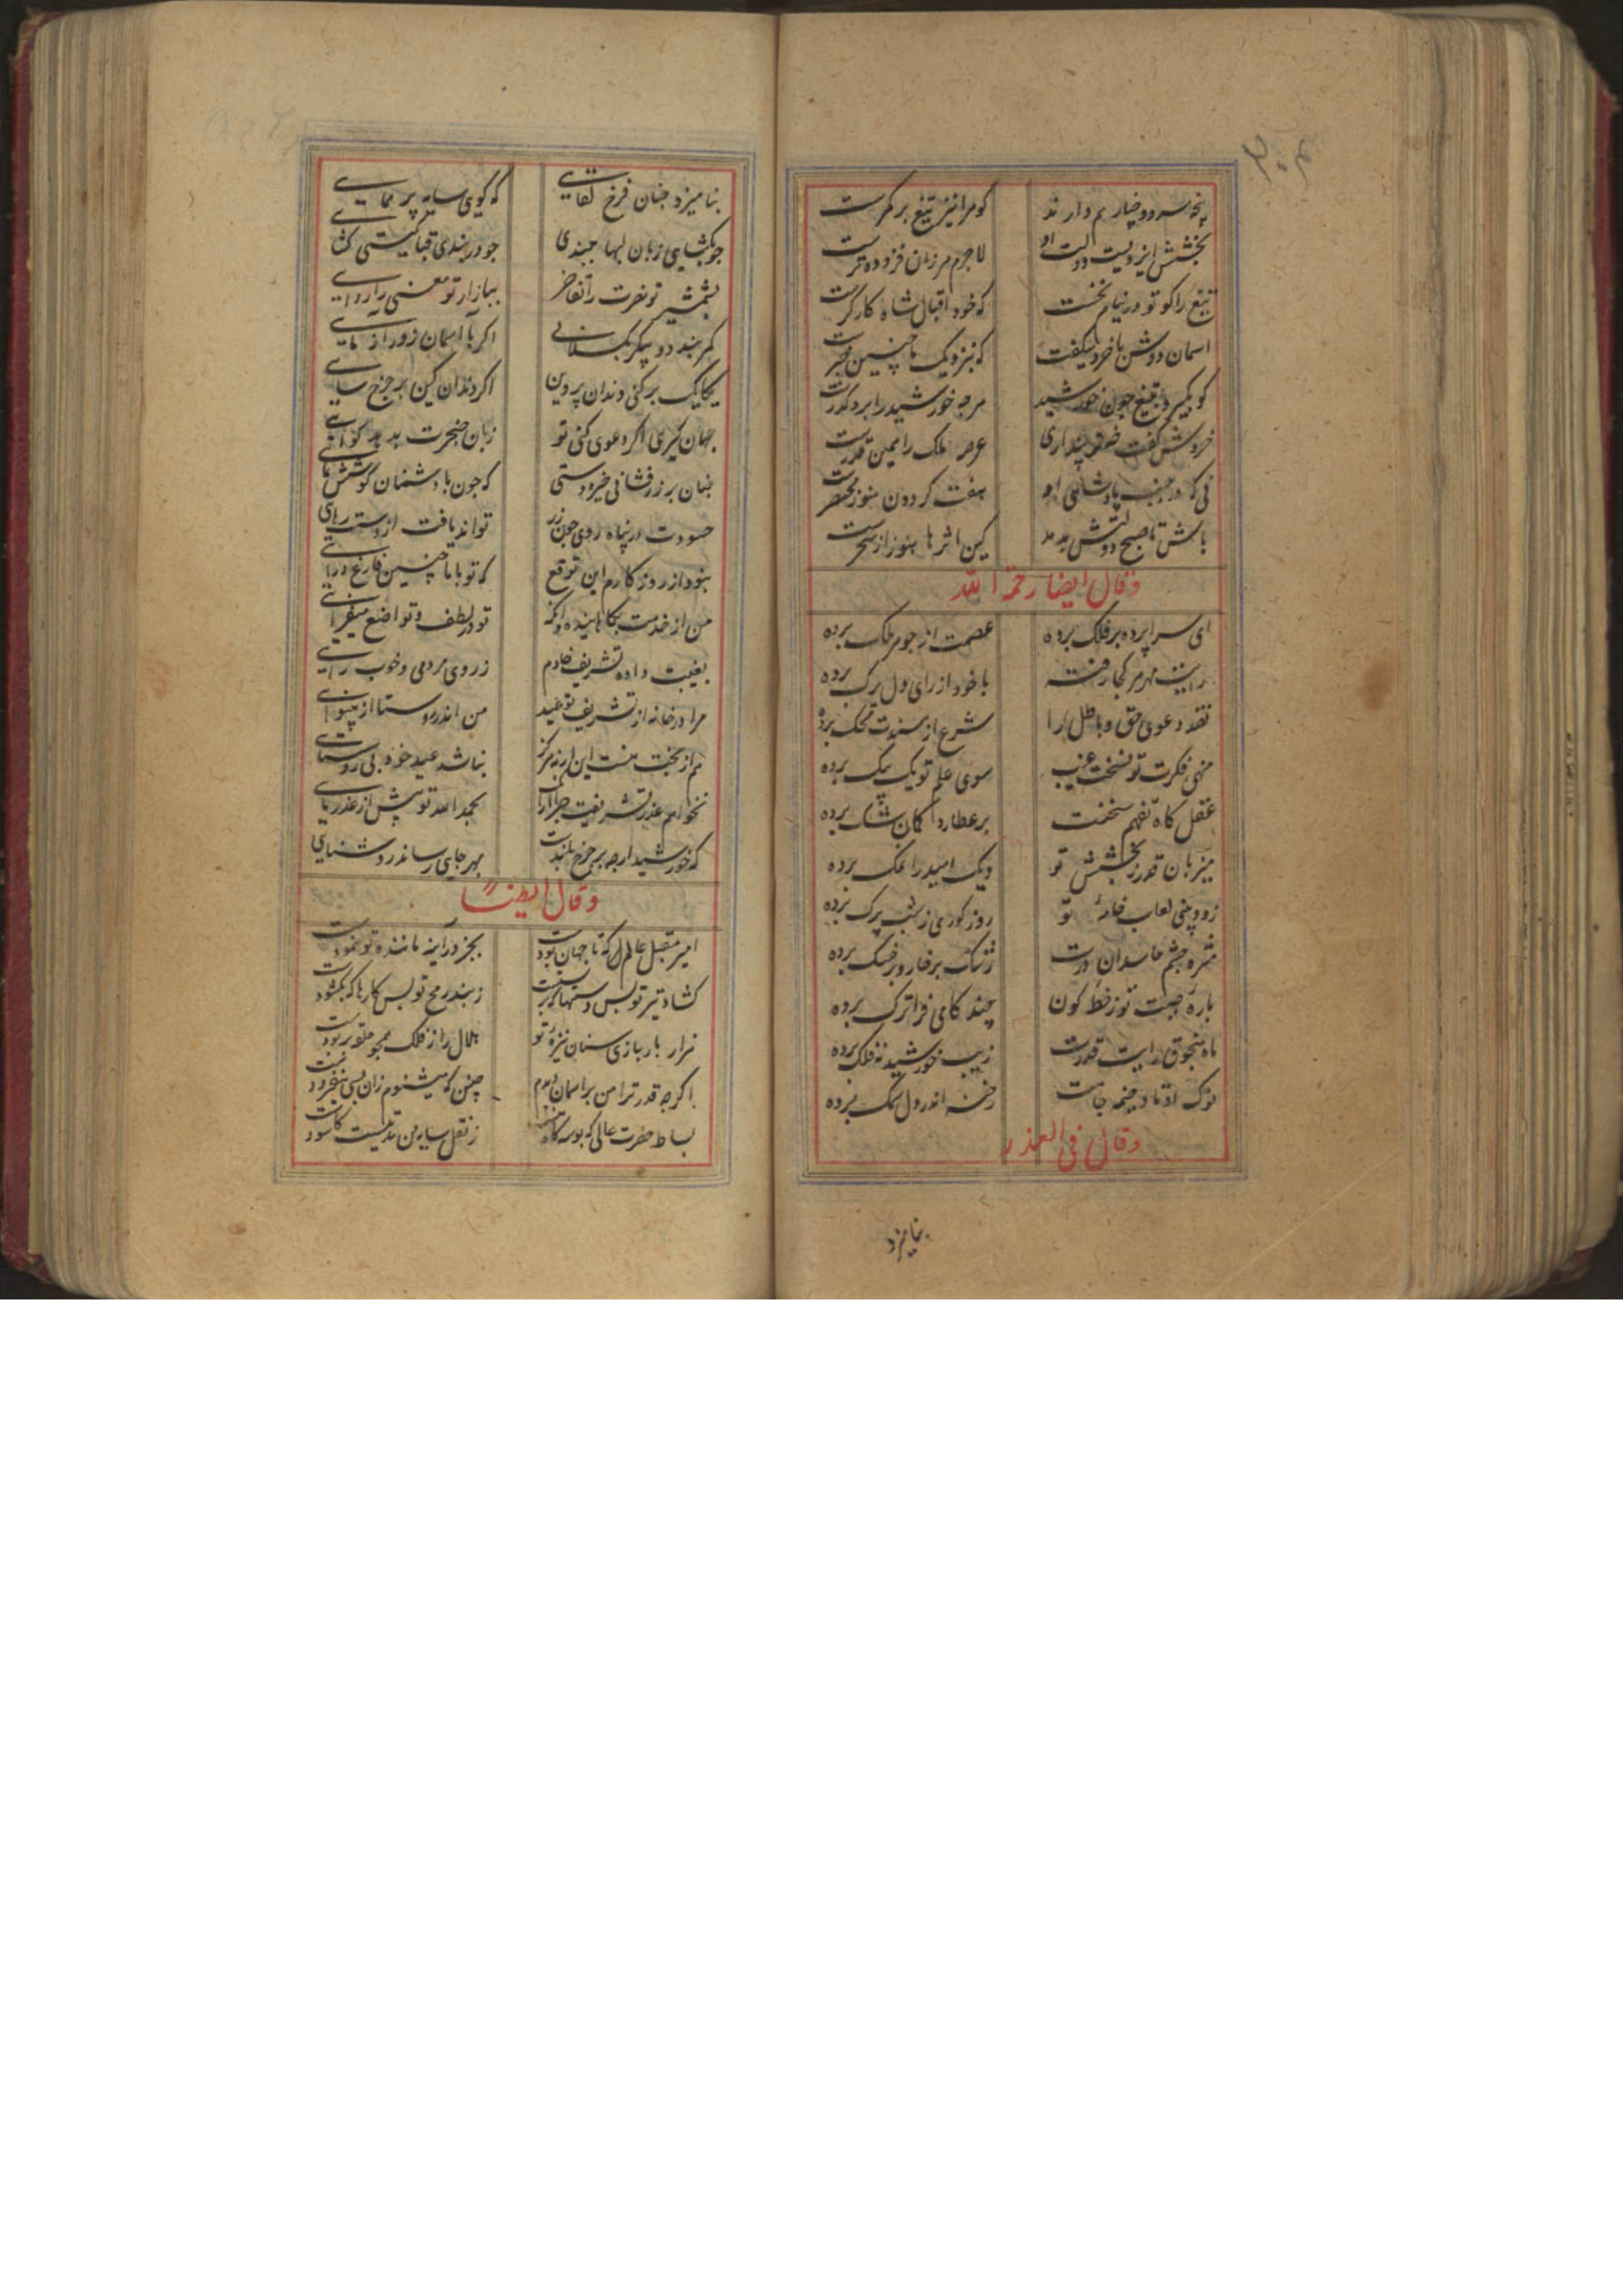 کو مرا نیز تیغ بر کمرست
بخشش ایزدیست دولت او
لاجرم هر زمان فزوده ترست
تیغ را کو تو در نیام نخست
که خود اقبال شاه کارگرست
اسمان دوش با خرد میکفت
که بنزدیک ما چنین خبرست
کو بگیرد بتیغ چون خورشید
هرچه خورشید را برو کذرست
خردش گفت تو چه پنداری
عرصه ملک را همین قدرست
نی که در جنب پادشاهی او
هفت کردون هنوز مختصرست
باش تا صبح دولتش بدمد
کین اثرها هنوز از سحرست
وقال ایضا رحمة الله
ای سراپرده بر فلک برده
عصمت از جوهر ملک برده
نقد دعوی حق و باطل را
منهی فکرت تو نسخت غیب
سوی علم تو یک بیک برده
عقل کاه تفهم سخنت
بر عطارد کمان شک برده
میزبان قدر ز بخشش تو
دیک امید را نمک برده
زود بینی لعاب خامهٔ تو
مژه چشم حاسدان درت
رشک بر خار و بر خسک برده
چند کامی فراترک برده
ماه منجوق رایت قدرت
زیب خورشید نه فلک برده
رخنه اندر دل سمک برده
وقال فی العذر
بنامیزد
بنامیزد چنان فرخ لقایی
که کویی سایهٔ پر همایی
چو بکشایی زبان لبها ببندی
چو در بندی قبا کیتی کشایی
بشمشیر تو نصرت را تفاخر
ببازار تو معنی را روایی
کمربند دو پیکر بکسلانی
اکر با اسمان زور ازمایی
یکایک برکنی دندان پروین
اکر دندان کین بر چرخ سایی
جهان کیری اکر دعوی کنی تو
زبان خنجرت بدهد کوایی
چنان بر زرفشانی خیره دستی
که چون با دشمنان کوشش نمایی
حسودت در پناه روی چون زر
تواند یافت از دستت رهایی
نبود از روزکارم این توقع
که تو با ما چنین فارغ درایی
من از خدمت بکاهاینده وانکه
تو در لطف و تواضع میفزایی
بغیبت داده تشریف خادم
ز روی مردمی و خوب رایی
مرا در خانه از تشریف تو عید
من اندر روستا از بینوایی
هم از بخت منست این ورنه هرکز
نباشد عید خود بی روستایی
نخواهم عذر تشریفت چرا زانک
بحمد الله تو بیش از عذر مایی
که خورشید ارچه بر چرخ بلندست
بهر جایی رساند روشنایی
وقال ایضاً
امیر مقبل عالم که تا جهان بودست
بجز در اینه مانند تو ننمودست
کشاد تیر تو بس دستها که بربستست
ز بند رمح تو بس کارها که بکشودست
هزار بار ببازی سنان نیزهٔ تو
هلال را ز فلک همچو حلقه بربودست
اکرچه قدر ترا من بر اسمان دیدم
چنین که میشنوم زان بسی بیفزودست
بساط حضرت عالی که بوسه کاه منست
ز ثقل سایه من مدتیست کاسودست